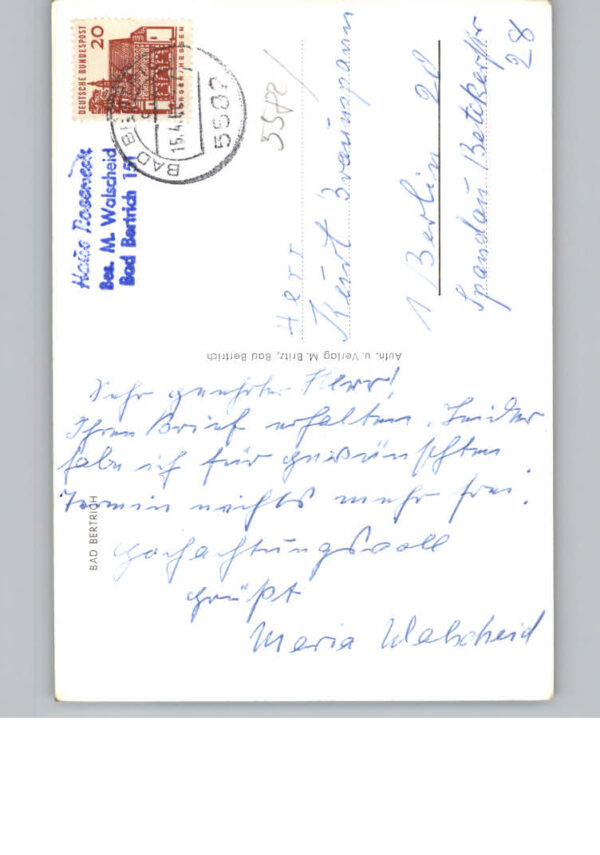 Sehr geehrter Herr!
Ihren Brief erhalten. Leider
habe ich für gewünschten
Termin nichts mehr frei.
Hochachtungsvoll
grüßt
Maria Walscheid
BAD BERTRICH
Aufn. u. Verlag M. Britz, Bad Bertrich
Herr
Kurt Braunspann
1 Berlin 20
Spandau
28
Haus
Bes. M. Walscheid
Bad Bertrich 151
DEUTSCHE BUNDESPOST
20
5582
BAD
15.4.
5582